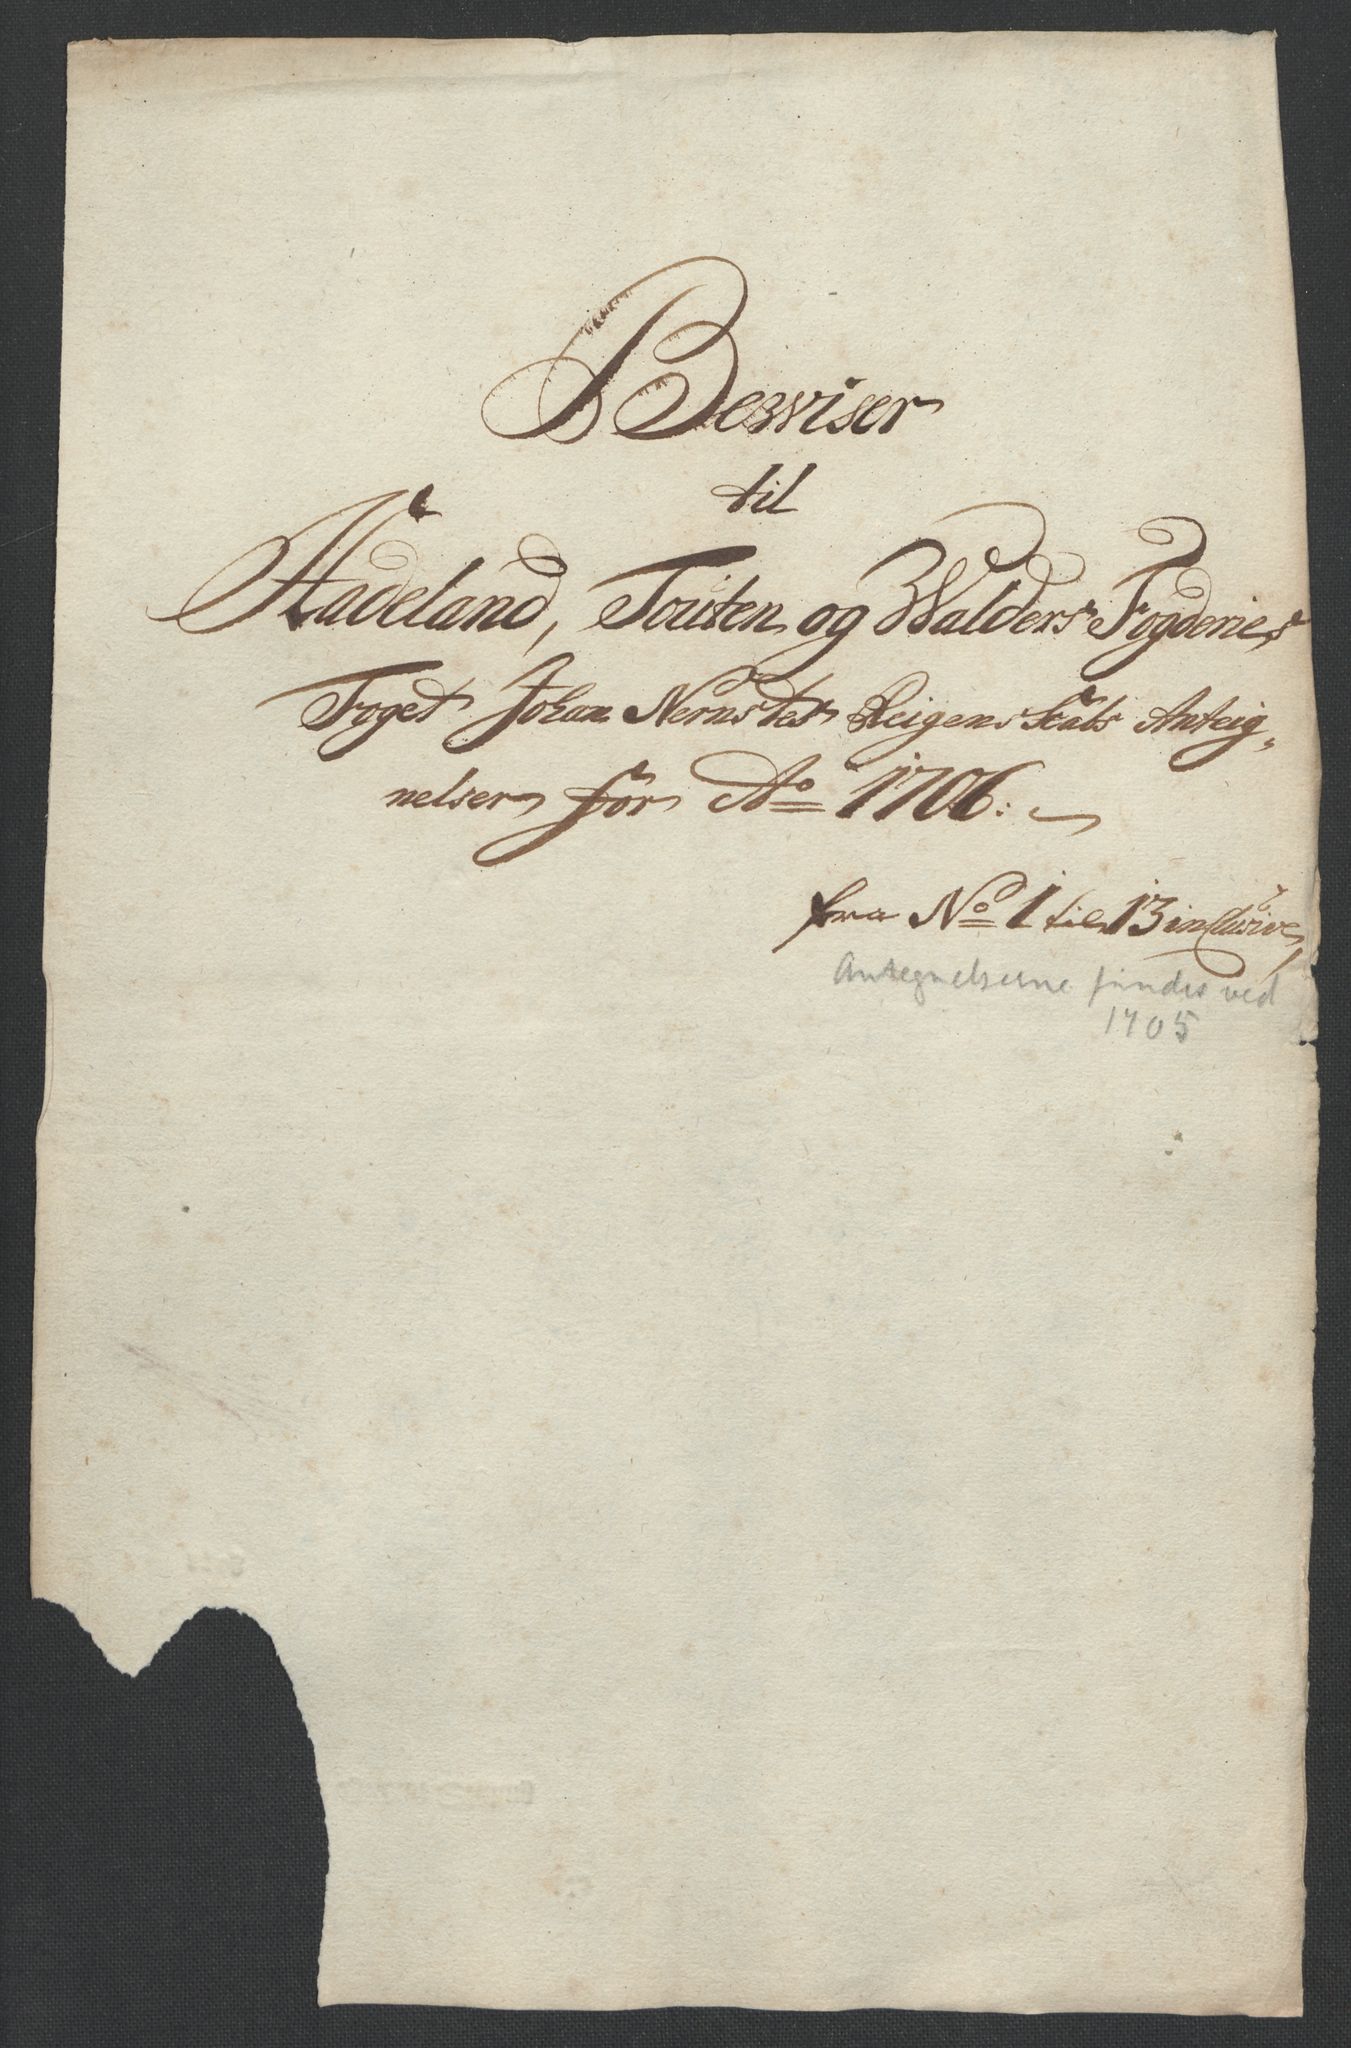 Bewiser
til
Hadeland, Touten og Walders Fogderies
Foget Johan Nernstes Reigenskabs Anteig„
nelser for Aº 1706:
fra Nº 1 til 13 inclusive,
Antegnelserne findes ved
1705